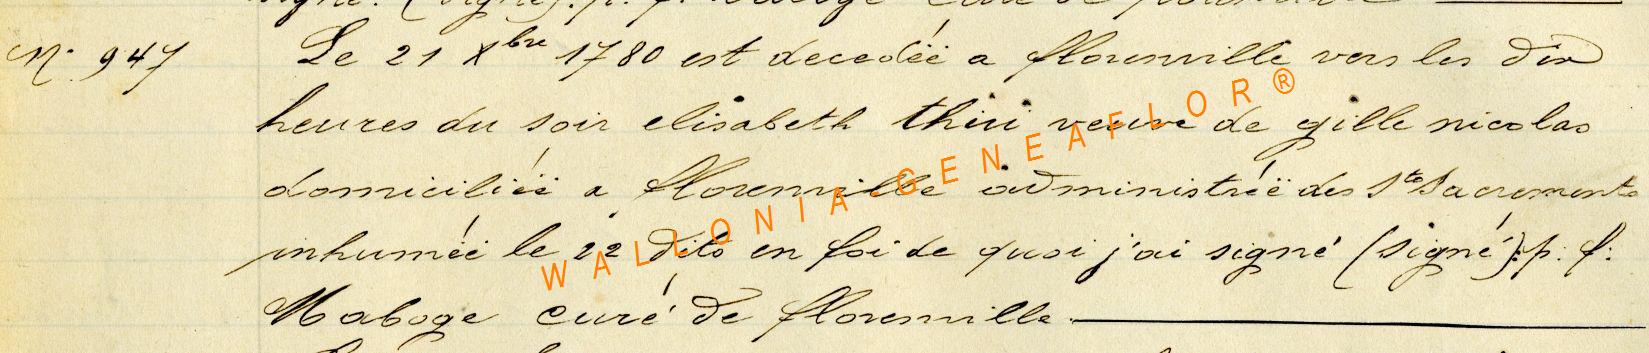 N° 947 Le 21 Xbre 1780 est decedéë a florenville vers les dix
heures du soir elisabeth thiri veuve de gille nicolas
domiciliéë a florenville administréë des Sts Sacrements
inhuméë le 22 dito en foi de quoi j'ai signé (signé): p. f:
Maboge curé de florenville.
WALLONIA GENEAFLOR®